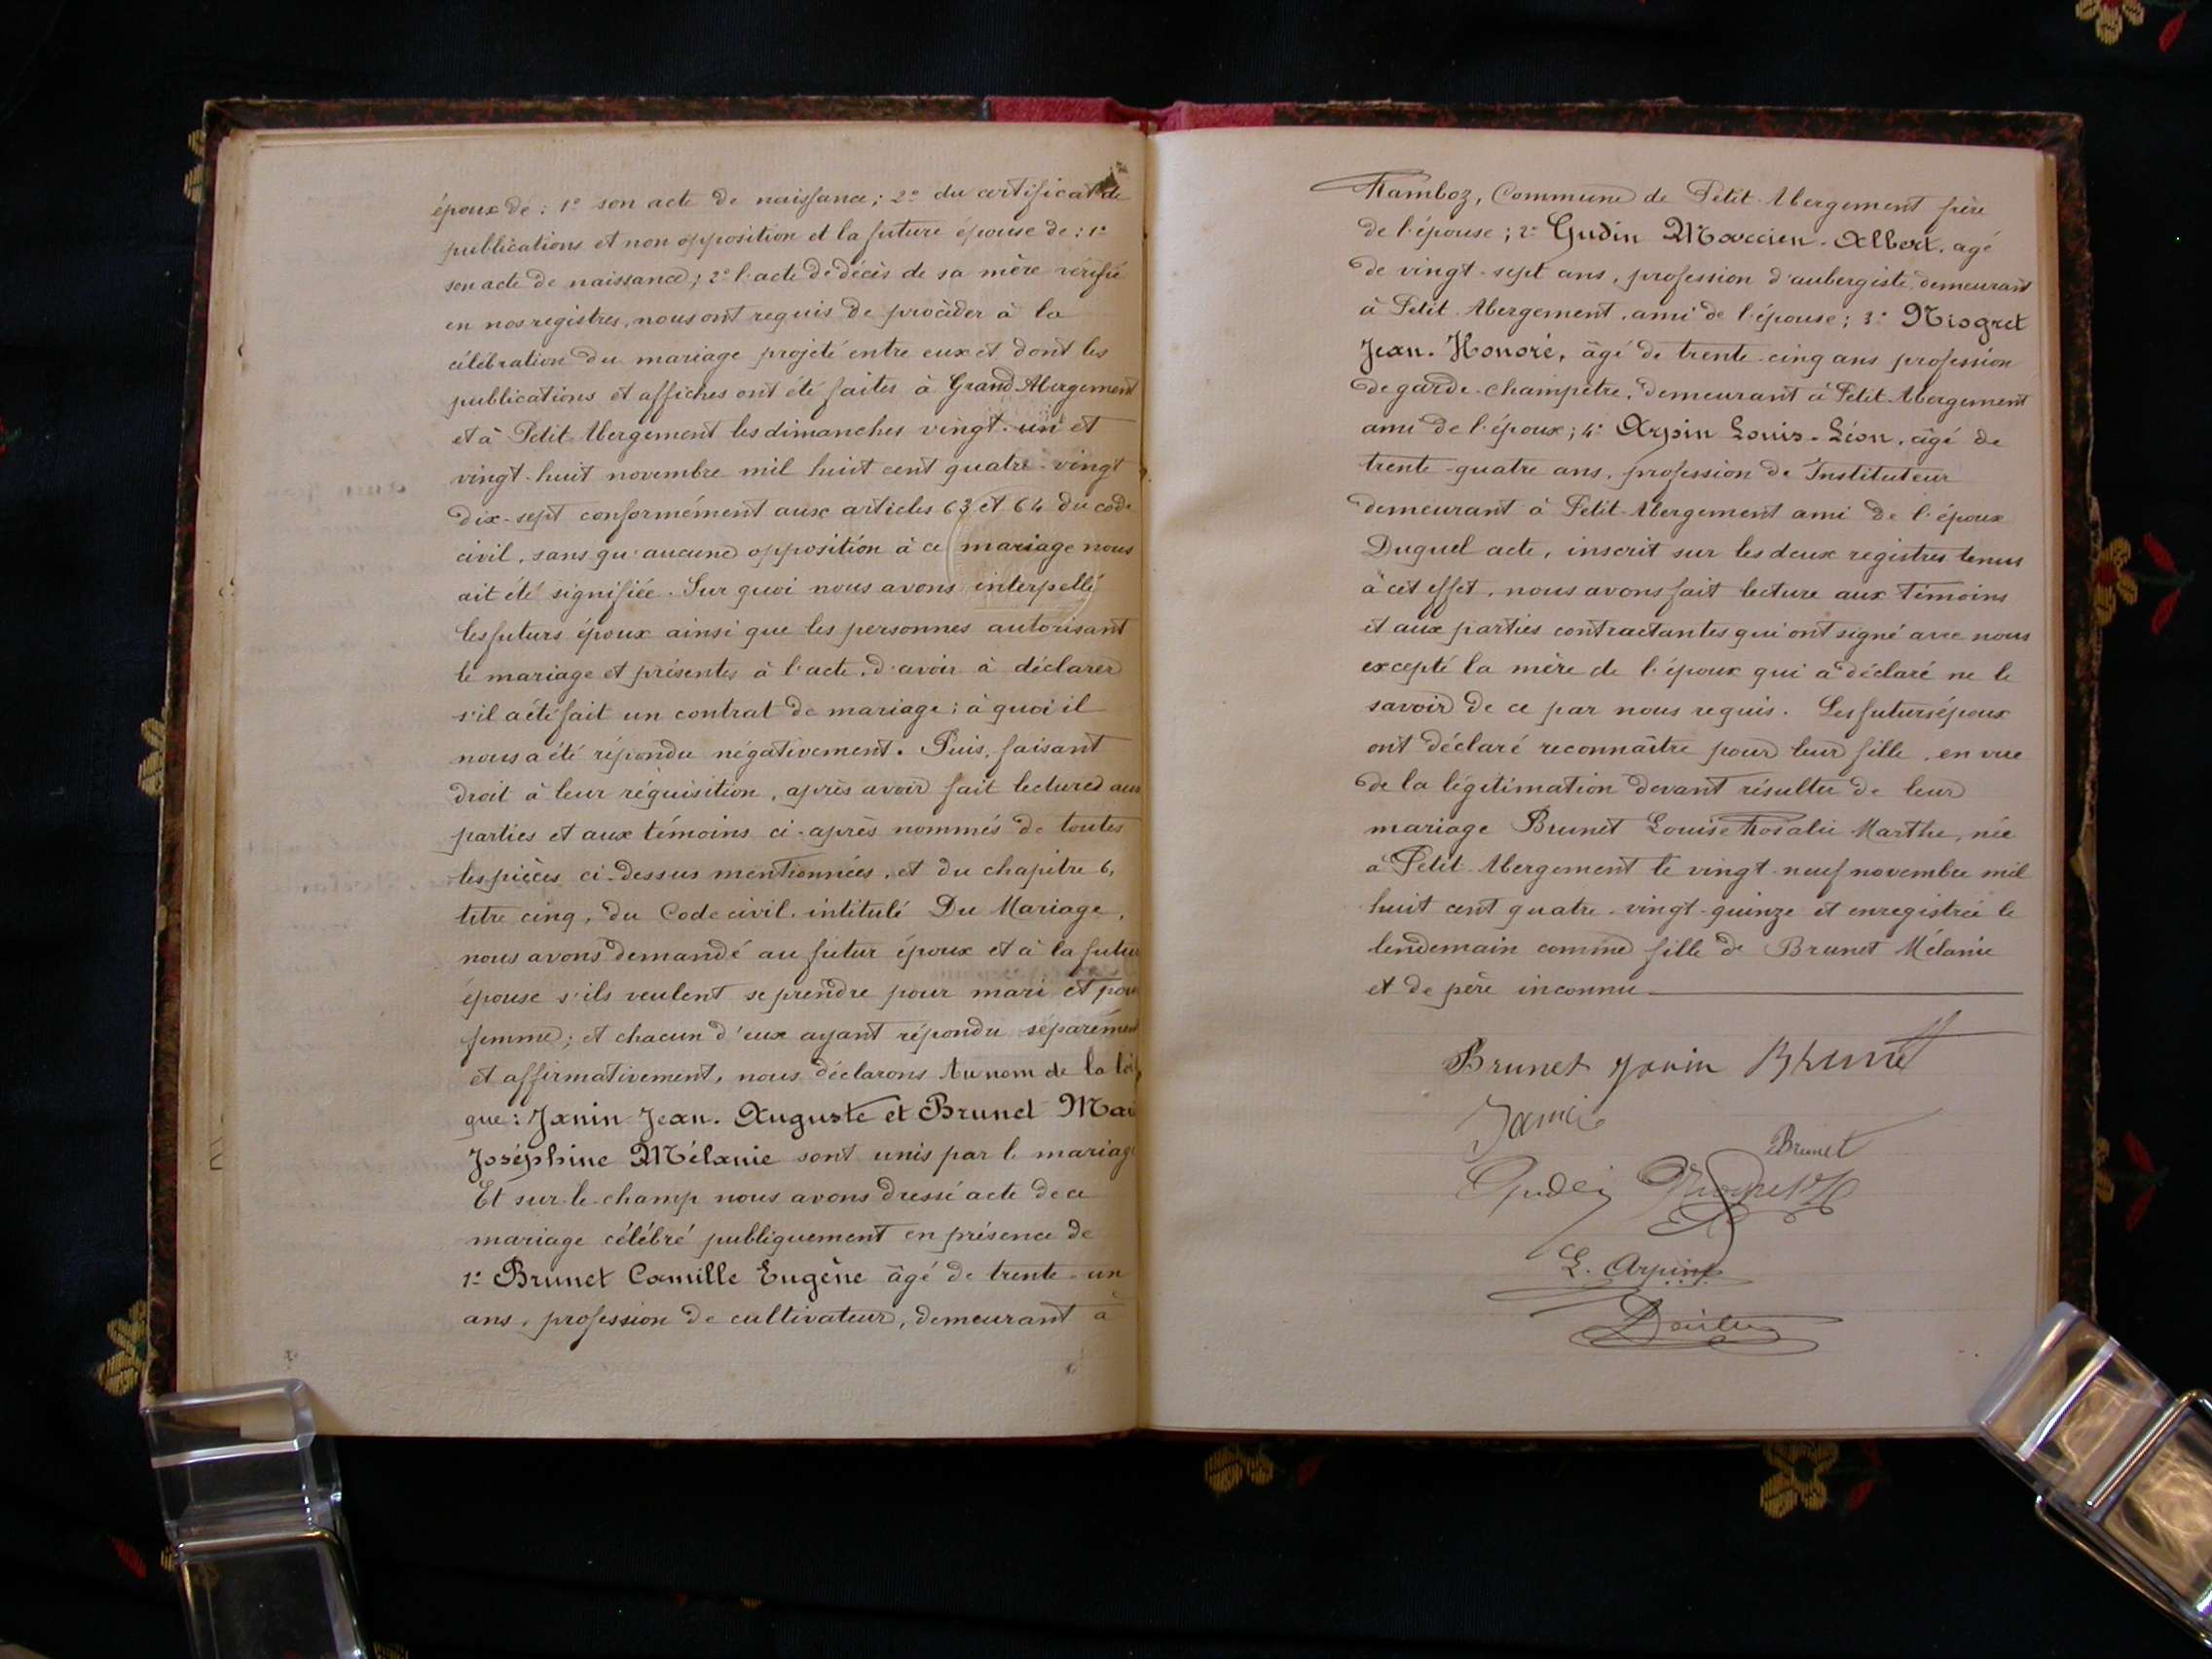 époux de : 1º son acte de naissance ; 2º du certificat de
publications et non opposition et la future épouse de : 1º
son acte de naissance ; 2º l'acte de décès de sa mère vérifié
en nos registres, nous ont requis de procéder à la
célébration du mariage projeté entre eux et dont les
publications et affiches ont été faites à Grand Abergement
et à Petit Abergement les dimanches vingt-un et
vingt-huit novembre mil huit cent quatre-vingt
dix-sept conformément aux articles 63 et 64 du code
civil, sans qu'aucune opposition à ce mariage nous
ait été signifiée. Sur quoi nous avons interpellé
les futurs époux ainsi que les personnes autorisant
le mariage et présentes à l'acte, d'avoir à déclarer
s'il a été fait un contrat de mariage ; à quoi il
nous a été répondu négativement. Puis, faisant
droit à leur réquisition, après avoir fait lecture aux
parties et aux témoins ci-après nommés de toutes
les pièces ci-dessus mentionnées, et du chapitre 6,
titre cinq, du Code civil, intitulé Du Mariage,
nous avons demandé au futur époux et à la futu
épouse s'ils veulent se prendre pour mari et pour
femme ; et chacun d'eux ayant répondu séparément
et affirmativement, nous déclarons Au nom de la loi,
que : Janin Jean-Auguste et Brunet Mari
Joséphine Mélanie sont unis par le mariage
Et sur-le-champ nous avons dressé acte de ce
mariage célébré publiquement en présence de
1º Brunet Camille Eugène âgé de trente-un
ans, profession de cultivateur, demeurant à
Ramboz, Commune de Petit-Abergement frère
de l'épouse ; 2º Gudin Marccien-Albert, agé
de vingt-sept ans, profession d'aubergiste, demeurant
à Petit-Abergement, ami de l'épouse ; 3º Niogret
Jean-Honoré, âgé de trente-cinq ans profession
de garde-champêtre, demeurant à Petit-Abergement
ami de l'époux ; 4º Arpin Louis-Léon, âgé de
trente-quatre ans, profession de Instituteur
demeurant à Petit-Abergement ami de l'époux
Duquel acte, inscrit sur les deux registres tenus
à cet effet, nous avons fait lecture aux témoins
et aux parties contractantes qui ont signé avec nous
excepté la mère de l'époux qui a déclaré ne le
savoir de ce par nous requis. Les futurs époux
ont déclaré reconnaître pour leur fille, en vue
de la légitimation devant résulter de leur
mariage Brunet Louise Rosalie Marthe, née
à Petit-Abergement le vingt-neuf novembre mil
huit cent quatre-vingt-quinze et enregistrée le
lendemain comme fille de Brunet Mélanie
et de père inconnu
Brunet Janin Brunet
Janin
Brunet
Gudin Niogret H
L. Arpin